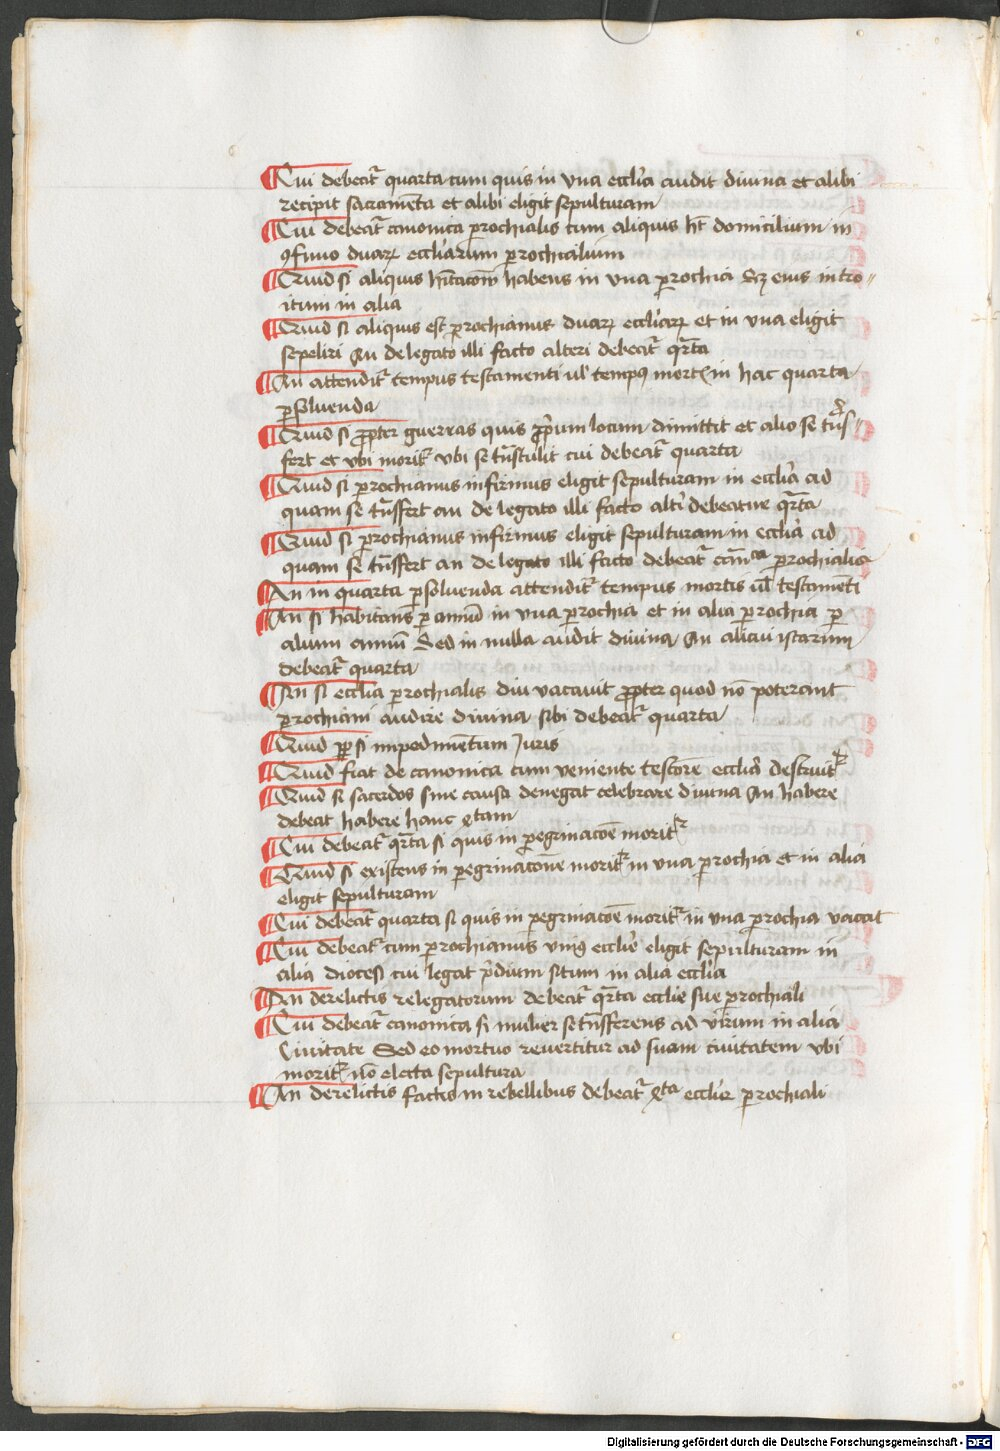 Cui debeat᷑ quarta cum quis in vna eccl'ia audit diuina et alibi
recipit sacrame̅ta et alibi eligit sepulturam
Cui debeat᷑ canonica ꝑrochialis cum aliquis ht̅ domicilium in
ꝯfinio duaꝝ eccl'iarum ꝑrochialium
Quid si aliquis hitac̅om̅ habens in vna ꝑrochia Sꝫ eius intro-
itum in alia
Quid si aliquis est ꝑrochianus duaꝝ eccl'iaꝝ et in vna eligit
sepeliri An de legato illi facto alteri debeat᷑ qr̅ta
An attendit᷑ tempus testamenti ul' tempꝰ mort̛ in hac quarta
ꝑsoluenda
Quid si ꝓpter guerras quis ꝓpriu̅m locum dimittit et alio se tn̅s-
fert et vbi morit᷑ vbi se tn̅stulit cui debeat᷑ quarta
Quid si ꝑrochianus infirmus eligit sepulturam in eccl'ia ad
quam se tn̅sfert an de legato illi facto alt'i debeatur qr̅ta
Quid si ꝑrochianus infirmus eligit sepulturam in eccl'ia ad
quam se tn̅sfert an de legato illi facto debeat᷑ can̅ca ꝑrochialis
An in quarta ꝑsoluenda attendit᷑ tempus mortis ul' testame̅ti
An si habitans ꝑ annu̅ in vna ꝑrochia et in alia ꝑrochia ꝑ
alium annu̅ Sed in nulla audit diuina An alicui istarum
debeat᷑ quarta
An si ecclia ꝑrochialis diu vacauit ꝓpter quod no̅ poterant
ꝑrochiani audire diuina sibi debeat᷑ quarta
Quid si impedime̅tum Juris
Quid fiat de canonica cum veniente eccl'ia destruit᷑
Quid si sacerdos sine causa denegat celebrare diuina An habere
debeat habere hanc qͬtam
Cui debeat᷑ qr̅ta si quis in ꝑegrinaco̅e morit᷑
Quid si existens in ꝑegrinaco̅ne morit᷑ in vna ꝑrochia et in alia
eligit sepulturam
Cui debeat᷑ quarta si quis in ꝑegrinaco̅e morit᷑ in vna ꝑrochia vacat
Cui debeat᷑ cum ꝑrochianus vniꝰ eccl'ie eligit sepulturam in
alia diocesi cui legat p̅dium situm in alia eccl'ia
An derelictis relegatorum debeat᷑ qr̅ta ecclie sue ꝑrochiali
Cui debeat᷑ canonica si mulier se tn̅sferens ad virum in alia
Ciuitate Sed eo mortuo reuertitur ad suam ciuitatem vbi
morit᷑ no̅ electa sepultura
An derelictis factis in rebellibus debeat᷑ qͬta eccl'ie ꝑrochiali
Digitalisierung gefördert durch die Deutsche Forschungsgemeinschaft - DFG